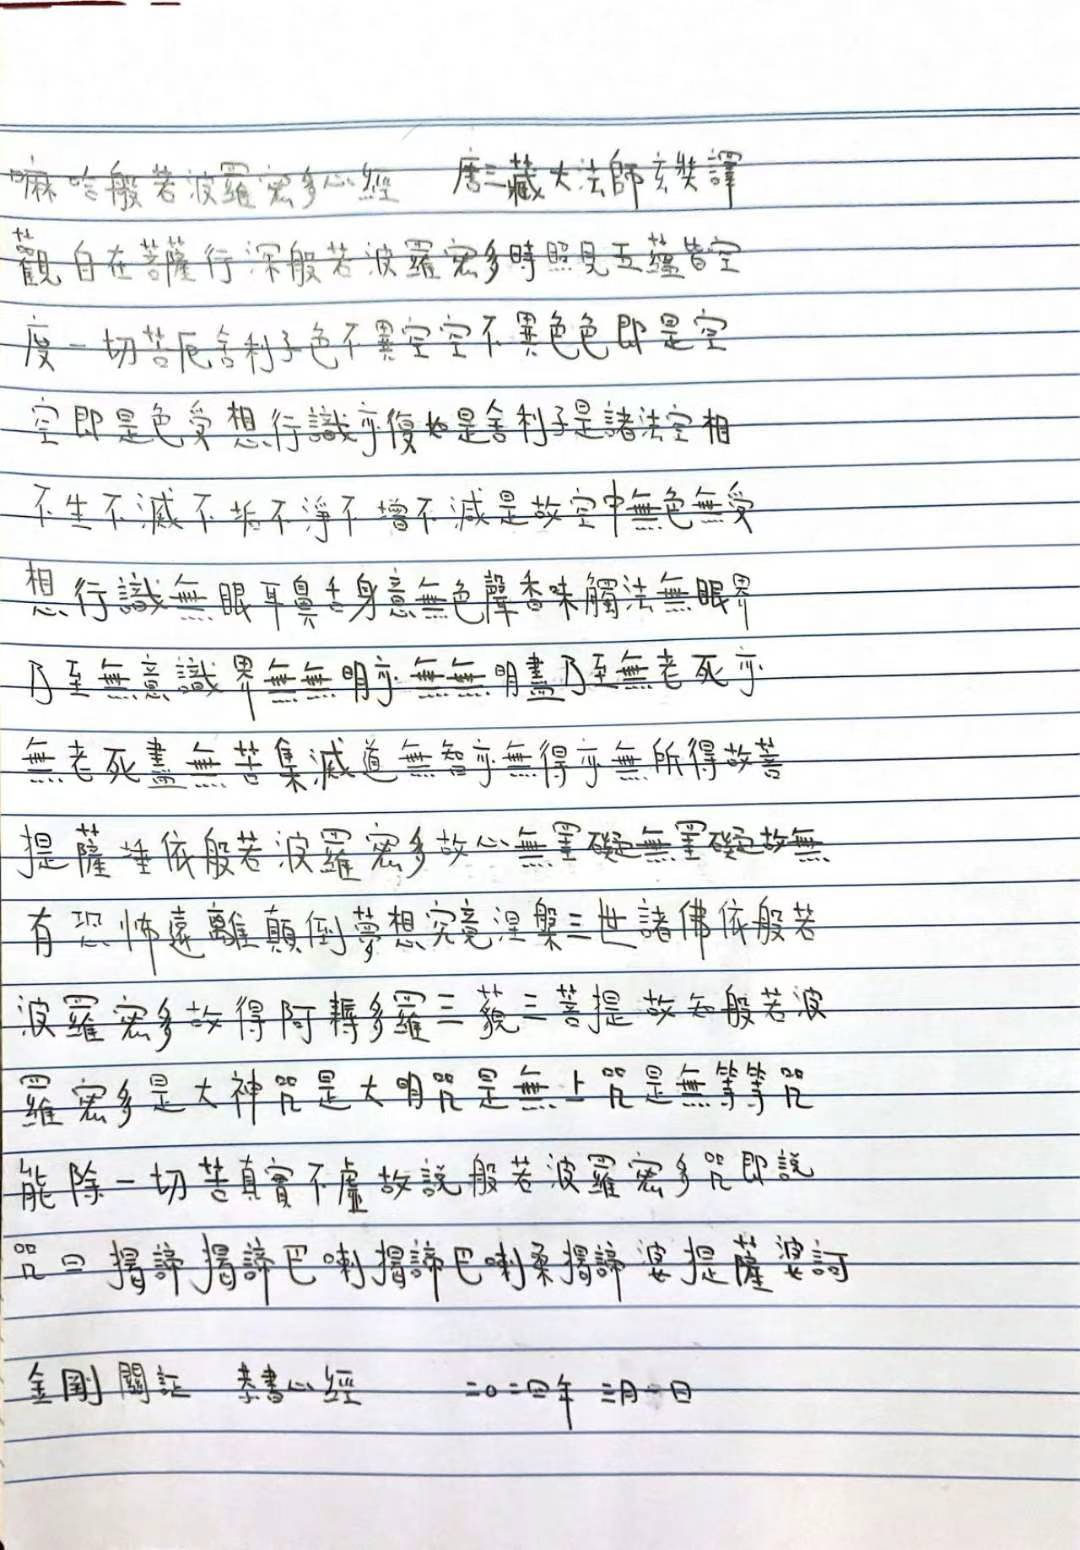 嘛哈般若波羅密多心經 唐三藏大法師玄奘譯
觀自在菩薩行深般若波羅密多時照見五蘊皆空
度一切苦厄舍利子色不異空空不異色色即是空
空即是色受想行識亦復如是舍利子是諸法空相
不生不滅不垢不淨不增不減是故空中無色無受
想行識無眼耳鼻舌身意無色聲香味觸法無眼界
乃至無意識界無無明亦無無明盡乃至無老死亦
無老死盡無苦集滅道無智亦無得亦無所得故菩
提薩埵依般若波羅密多故心無罣礙無罣礙故無
有恐怖遠離顛倒夢想究竟涅槃三世諸佛依般若
波羅密多故得阿耨多羅三藐三菩提故知般若波
羅密多是大神咒是大明咒是無上咒是無等等咒
能除一切苦真實不虛故說般若波羅密多咒即說
咒曰揭諦揭諦巴喇揭諦巴喇桑揭諦婆提薩婆訶
金剛 書心經 二〇二四年三月一日